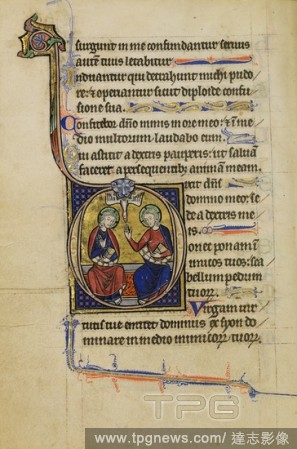 surgunt in me confundantur seruus
autem tuus letabitur
Induantur qui detrahunt michi pudo
re: et operiantur sicut diploide confu
sione sua.
Confitebor domino nimis in ore meo: et in me
dio multorum laudabo eum.
Qui astitit a dextris pauperis: ut saluam
faceret a persequentibus animam meam.
Dixit dominus
domino meo: se
de a dextris me
is.
Donec ponam i
nimicos tuos: sca
bellum pedum
tuorum.
Virgam uir
tutis tue emittet dominus ex syon do
minare in medio inimicorum tuorum.
TPG
www.tpgnews.com / 達志影像